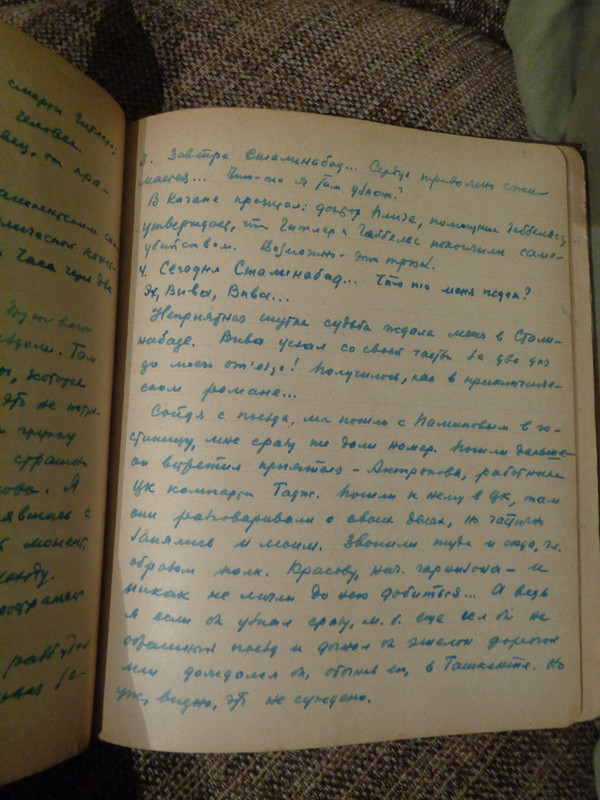 смерти Гитлера:
человек.
3. Завтра Сталинабад... Сердце тревожно сжи-
мается... Что-то я там узнаю?
В Кагане прочитал: доктор Фриче, помощник Геббельса
утверждает, что Гитлер и Геббельс покончили само-
убийством. Возможно - это трюк.
4. Сегодня Сталинабад... Что-то меня ждет?
Эх, Вива, Вива...
Неприятная шутка судьбы ждала меня в Стали-
набаде. Вива уехал со своей частью за два дня
до моего от'езда! Получилось, как в приключенче-
ском романе...
Сойдя с поезда, мы пошли с в го-
стиницу, мне сразу же дали номер. Пошли дальше -
он встретил приятеля - Антропова, работника
ЦК компартии Тадж. Пошли к нему в ЦК, там
они разговаривали о своих делах, но частично
занялись и моим. Звонили туда и сюда, гл.
образом полк. Красову, нач. гарнизона - и
никак не могли до него добиться... А ведь
я если бы узнал сразу, м. б. еще сел бы на
обратный поезд и догнал бы эшелон дорогой
или дождался бы, обогнав его, в Ташкенте. Но
уж, видно, это не суждено.